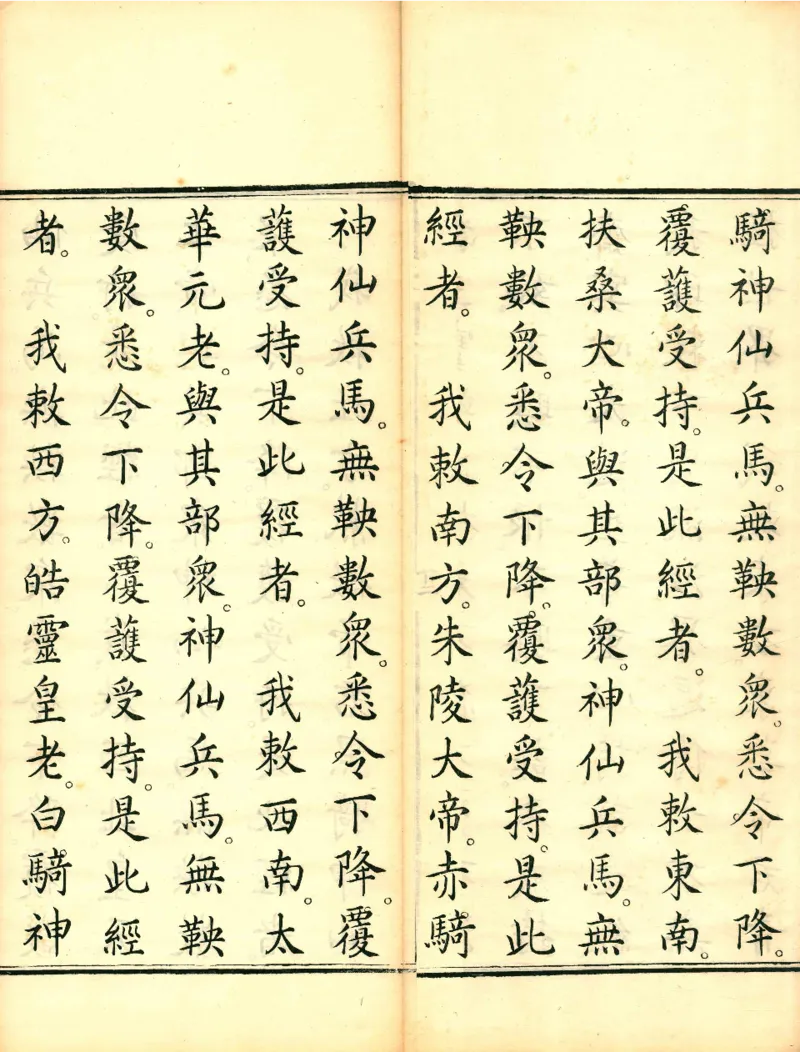 騎神仙兵馬。無鞅數衆。悉令下降。
覆護受持。是此經者。　我敕東南。
扶桑大帝。與其部衆。神仙兵馬。無
鞅數衆。悉令下降。覆護受持。是此
經者。　我敕南方。朱陵大帝。赤騎
神仙兵馬。無鞅數衆。悉令下降。覆
護受持。是此經者。　我敕西南。太
華元老。與其部衆。神仙兵馬。無鞅
數衆。悉令下降。覆護受持。是此經
者。　我敕西方。皓靈皇老。白騎神